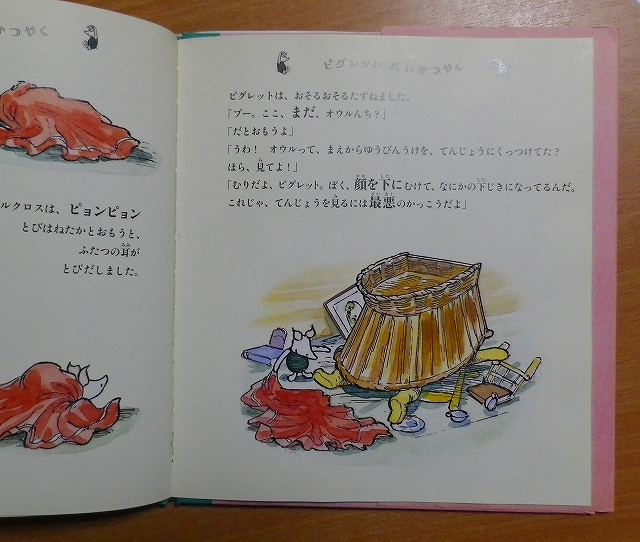 かつやく
ルクロスは、ピョンピョン
とびはねたかとおもうと、
ふたつの耳が
とびだしました。
ピグレット だいかつやく
ピグレットは、おそるおそるたずねました。
「プー。ここ、まだ、オウルんち？」
「だとおもうよ」
「うわ！ オウルって、まえからゆうびんうけを、てんじょうにくっつけてた？
ほら、見てよ！」
「むりだよ、ピグレット。ぼく、顔を下にむけて、なにかの下じきになってるんだ。
これじゃ、てんじょうを見るには最悪のかっこうだよ」